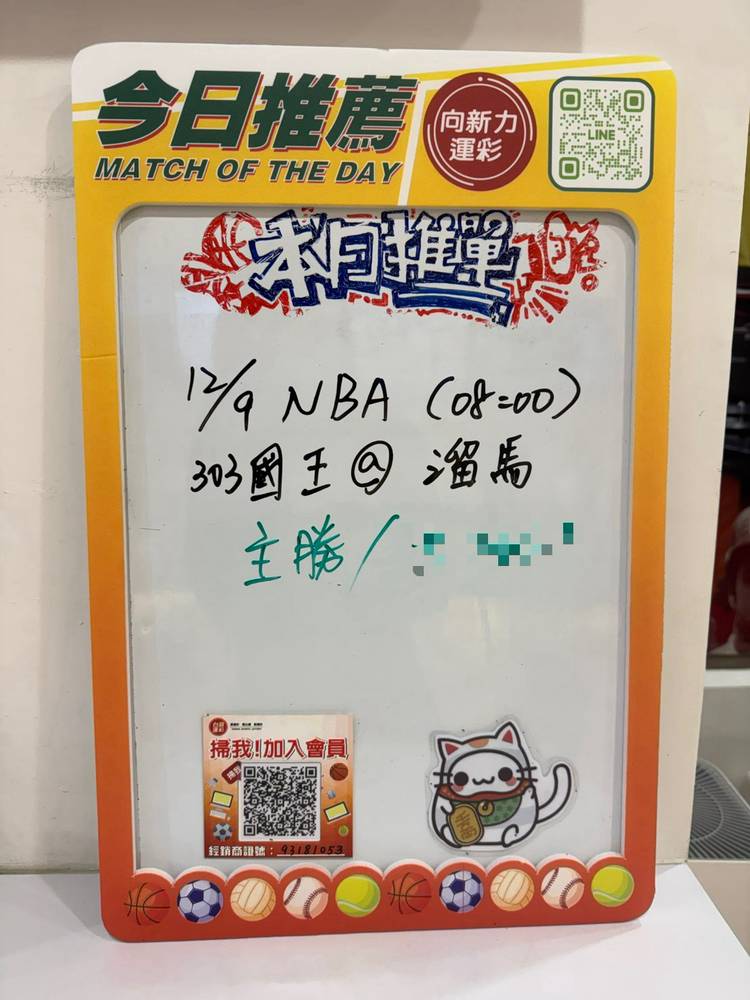 今日推薦
MATCH OF THE DAY
向新力
運彩
LINE
本月推單
12/9 NBA (08:00)
303國王@溜馬
主勝/
掃我!加入會員
經銷商證號：93181053